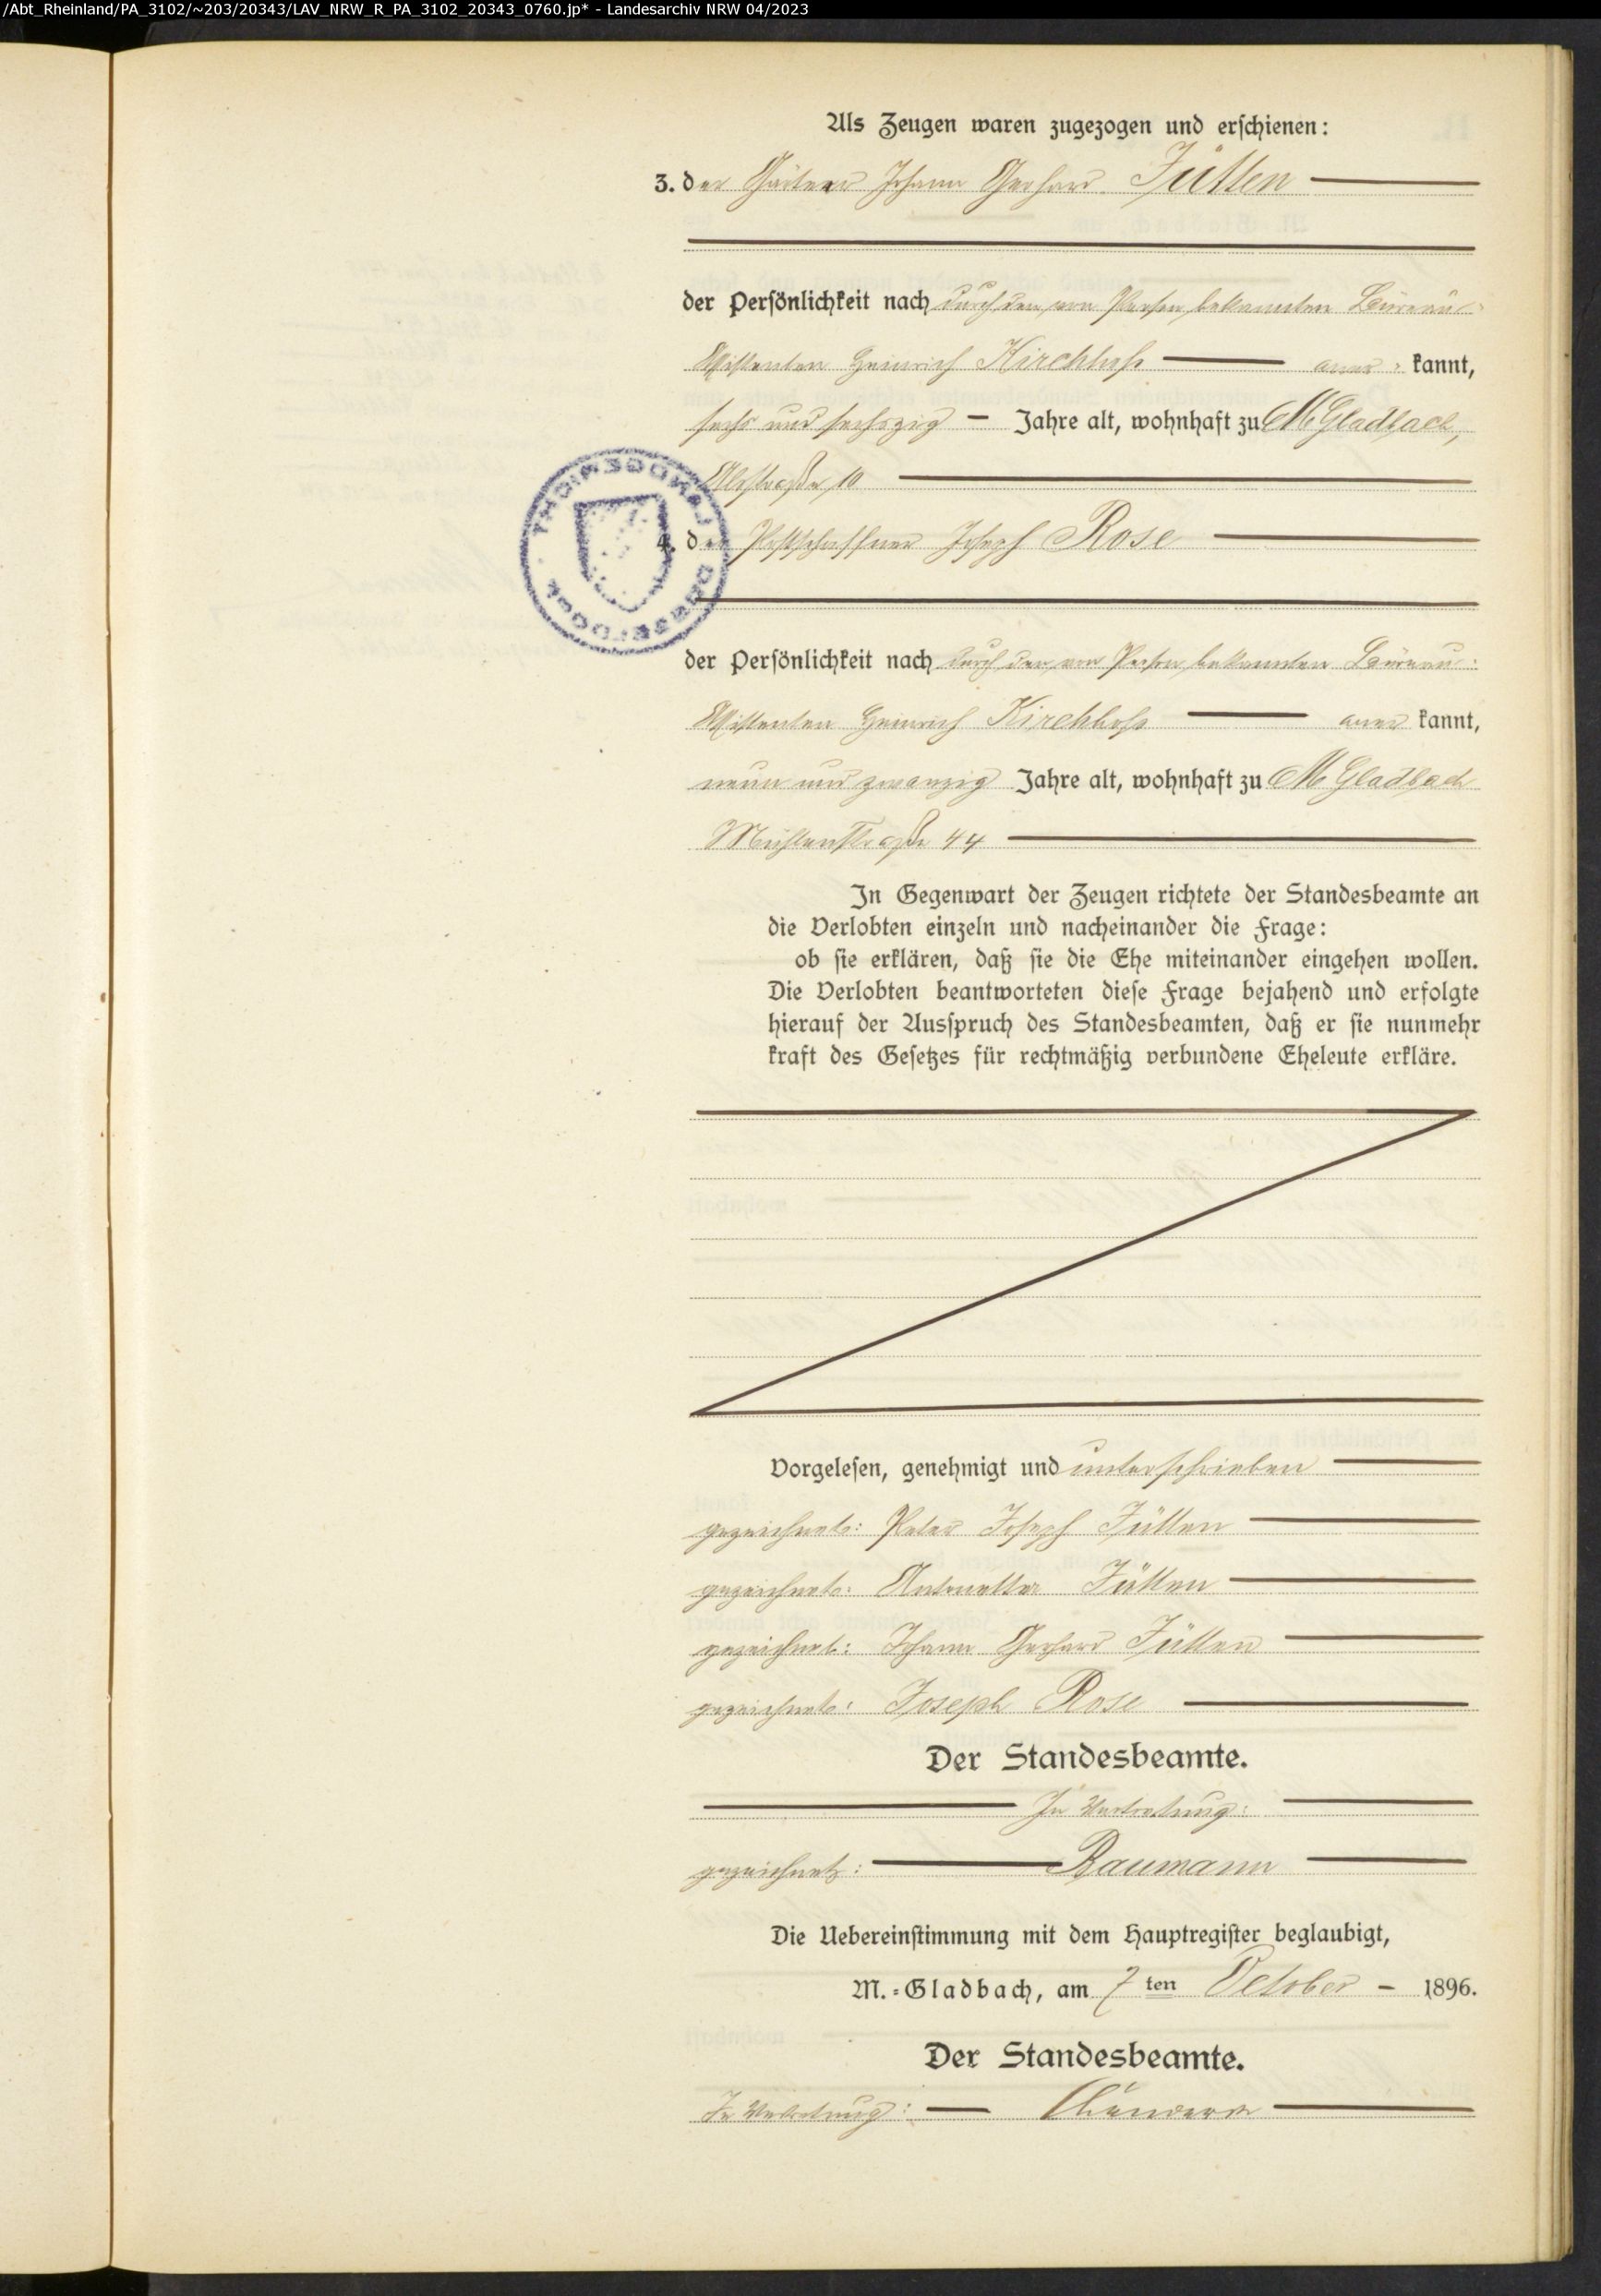 /Abt_Rheinland/PA_3102/~203/20343/LAV_NRW_R_PA_3102_20343_0760.jp* - Landesarchiv NRW 04/2023
Als Zeugen waren zugezogen und erschienen:
3. der Gärtner Johann Gerhard Jütten
der Persönlichkeit nach durch den von Person bekannten Büreau-
Assistenten Heinrich aner- kannt,
sechs und sechszig — Jahre alt, wohnhaft zu M Gladbach,
10
4. der Postschaffner Joseph Rose
der Persönlichkeit nach durch den von Person bekannten Büreau-
Assistenten Heinrich aner kannt,
neun und zwanzig Jahre alt, wohnhaft zu M Gladbach
Mühlenstraße 44
In Gegenwart der Zeugen richtete der Standesbeamte an
die Verlobten einzeln und nacheinander die Frage:
ob sie erklären, daß sie die Ehe miteinander eingehen wollen.
Die Verlobten beantworteten diese Frage bejahend und erfolgte
hierauf der Ausspruch des Standesbeamten, daß er sie nunmehr
kraft des Gesetzes für rechtmäßig verbundene Eheleute erkläre.
Vorgelesen, genehmigt und unterschrieben
gezeichnet: Peter Joseph Jütten
gezeichnet: Antonetta Jütten
gezeichnet: Johann Gerhard Jütten
gezeichnet: Joseph Rose
Der Standesbeamte.
In Vertretung:
gezeichnet: Baumann
Die Uebereinstimmung mit dem Hauptregister beglaubigt,
M.-Gladbach, am 7 ten October — 1896.
Der Standesbeamte.
In Vertretung: